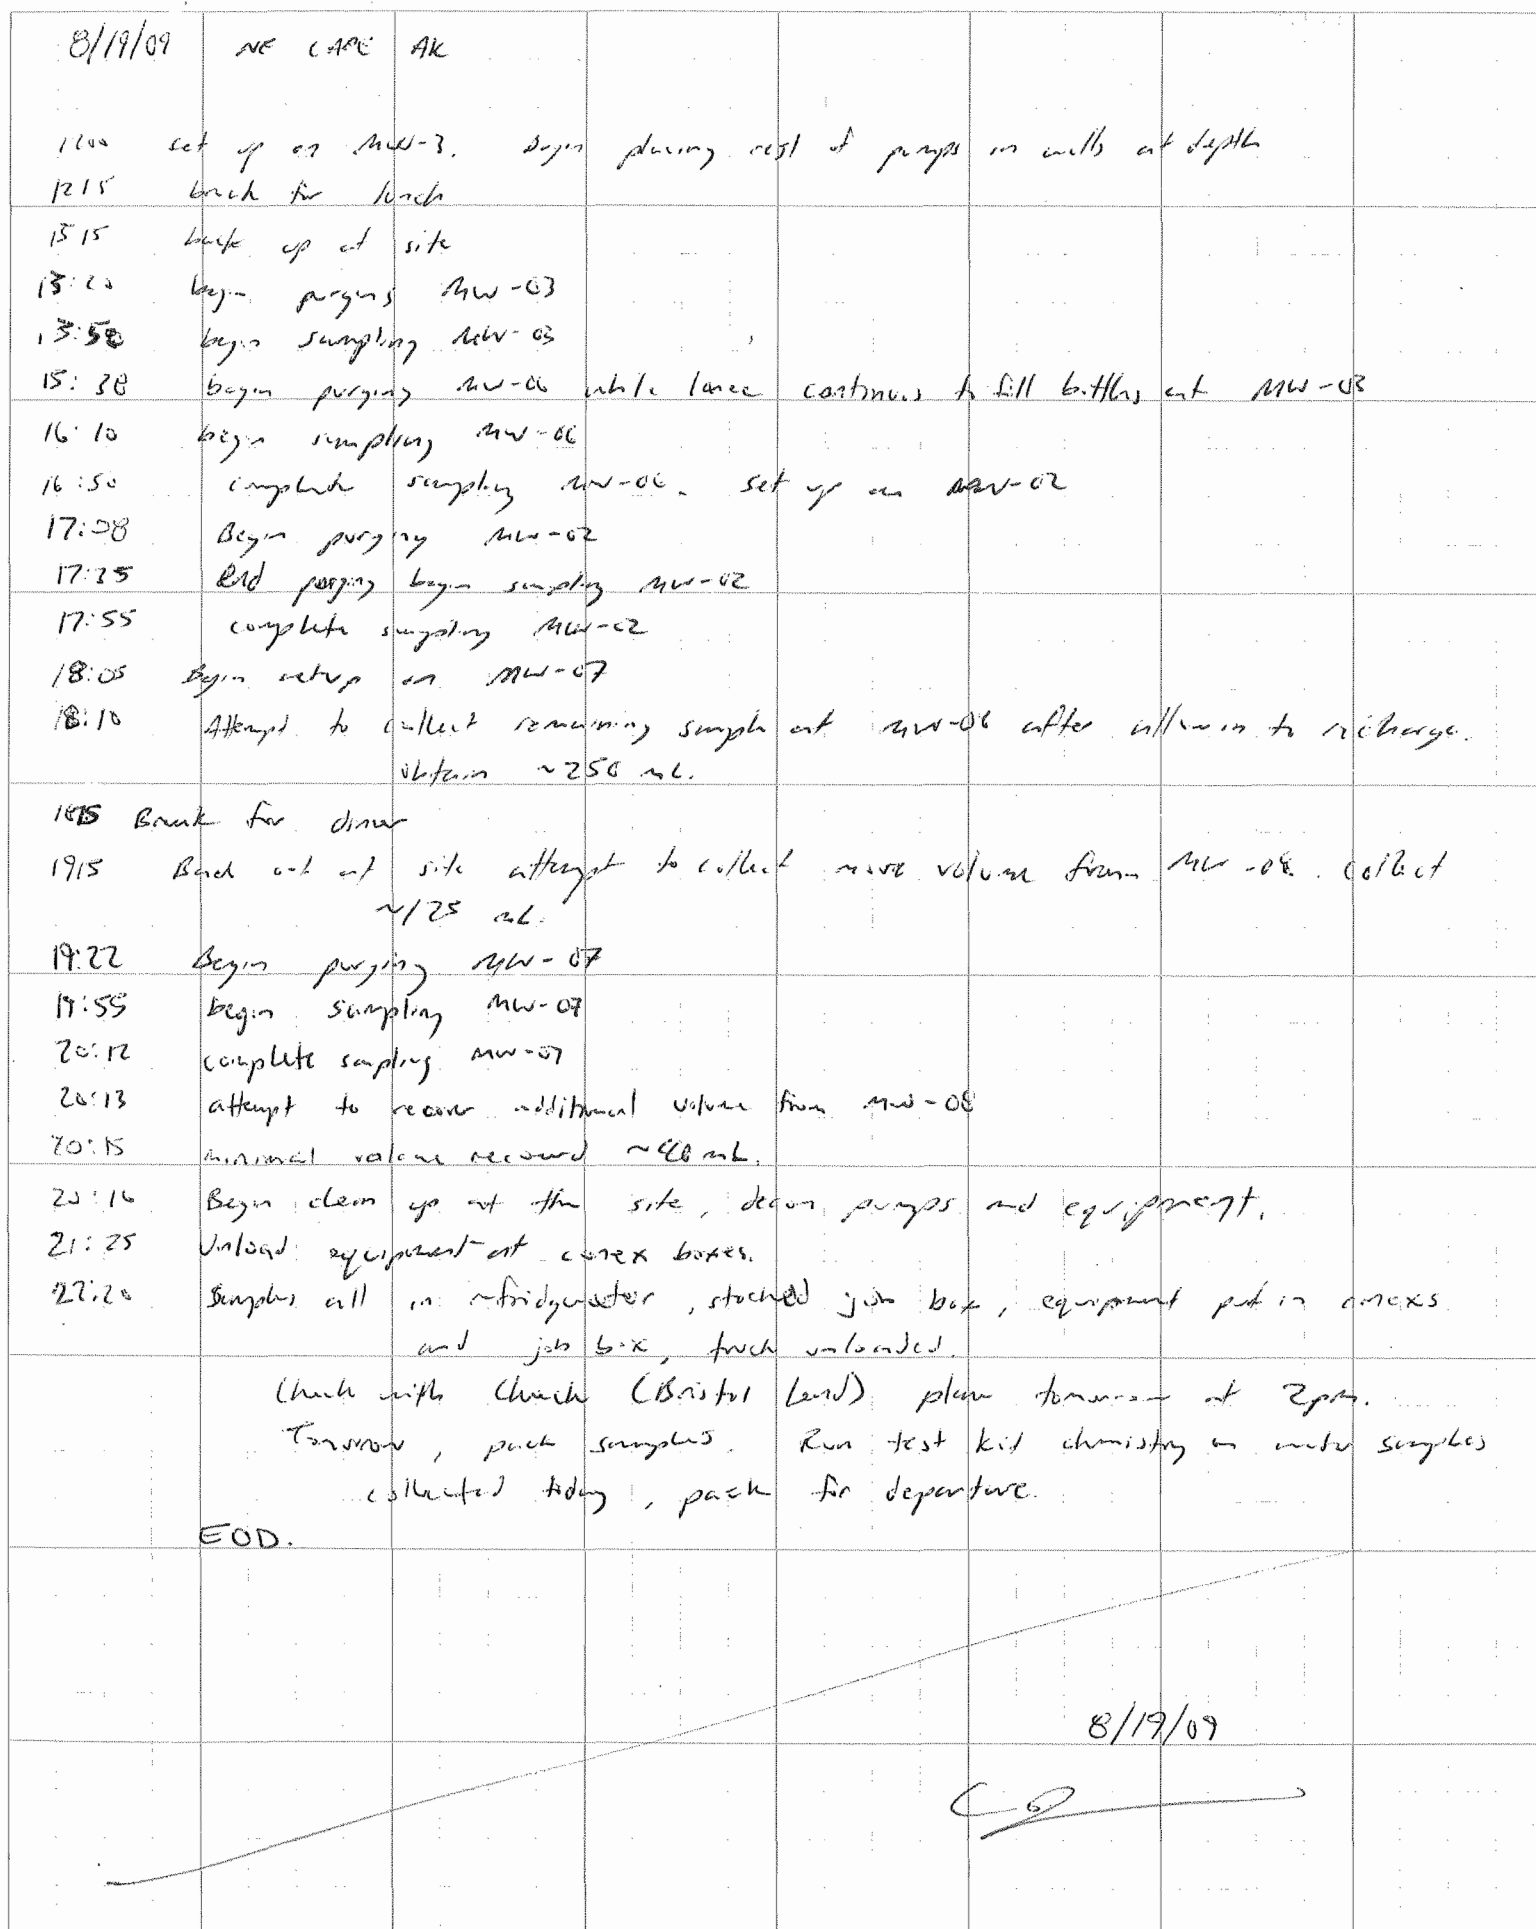 8/19/09 NE CAPE AK
1200 set up on MW-3. Begin placing rest of pumps in wells at depth
1215 break for lunch
1315 back up at site
13:20 begin purging MW-03
13:50 begin sampling MW-03
15:38 begin purging MW-06 while Lance continues to fill bottles at MW-03
16:10 begin sampling MW-06
16:50 complete sampling MW-06. set up on MW-02
17:08 Begin purging MW-02
17:35 End purging begin sampling MW-02
17:55 complete sampling MW-02
18:05 Begin setup on MW-07
18:10 Attempt to collect remaining sample at after allowin to recharge.
obtain ~250 mL.
Break for dinner
1915 Back out at site attempt to collect more volume from collect
~125 mL.
19:22 Begin purging MW-07
19:55 begin sampling MW-07
20:12 complete sampling MW-07
20:13 attempt to recover additional volume from
20:15 minimal volume recoverd ~40 mL.
20:16 Begin clean up at the site, decon pumps and equipment.
21:25 Unload equipment at conex boxes.
22:20 Samples all in refridgerater, stocked job box, equipment put in conexs
and job box, truck unloaded.
Check with Chuck (Bristol Lead) plane tomorrow at 2pm.
Tomorrow, pack samples. Run test kit chemistry on water samples
collected today, pack for departure.
EOD.
8/19/09